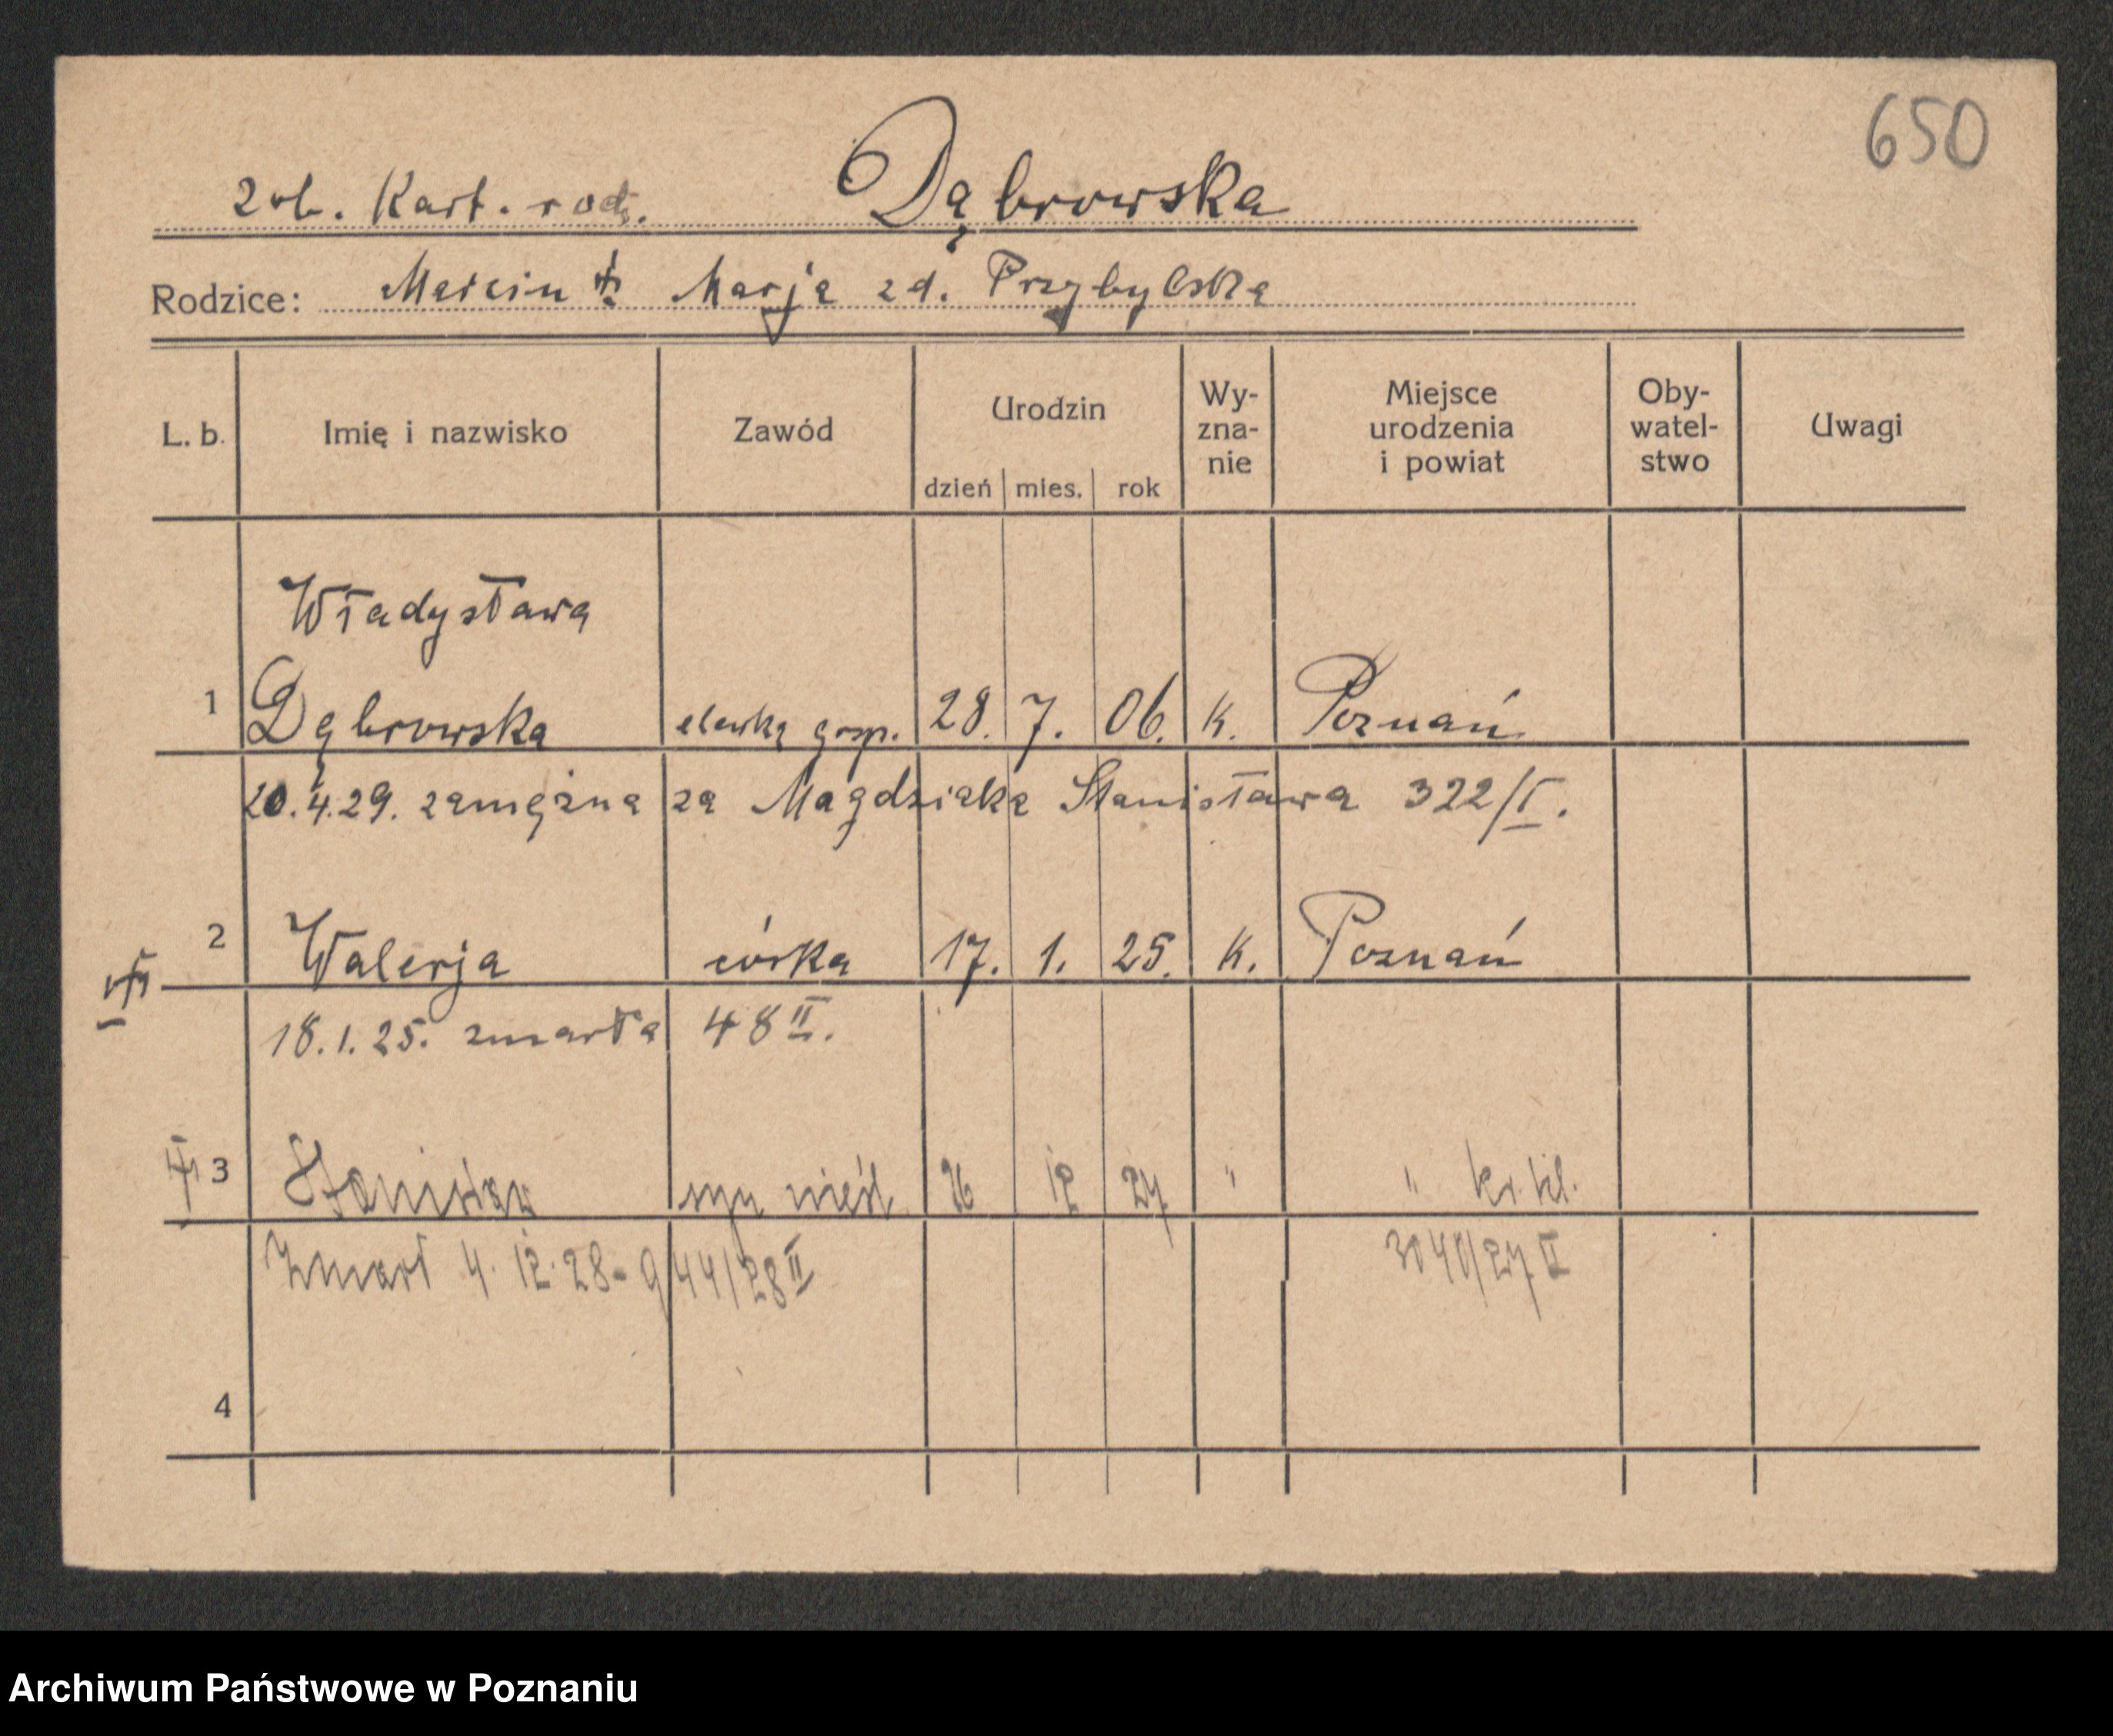 650
zob. Kart. rodz. Dąbrowska
Rodzice: Marcin Marja zd. Przybylska
L. b. Imię i nazwisko Zawód Urodzin dzień mies. rok Wy-zna-nie Miejsce urodzenia i powiat Oby-watel-stwo Uwagi
Władysława
1 Dąbrowska elewka gosp. 28. 7. 06. K. Poznań
20.4.29. zamężna za Magdziaka Stanisława 322/I.
2 Walerja córka 17. 1. 25. K. Poznań
18.1.25. zmarła 48 II.
3 Stanisław syn nieśl 26 12 27 " "
Zmarł 4. 12. 28 - 944/28 II 3040/27 II
4
Archiwum Państwowe w Poznaniu